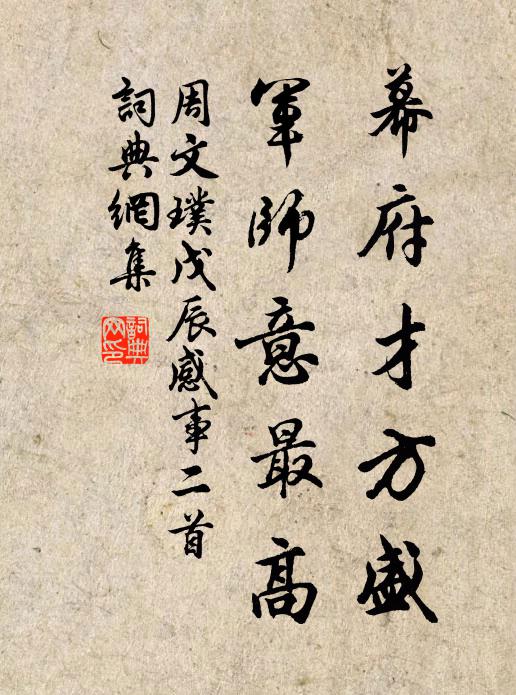 幕府才方盛
軍師意最高
周文璞戊辰感事二首
詞典網集
詞典
网印